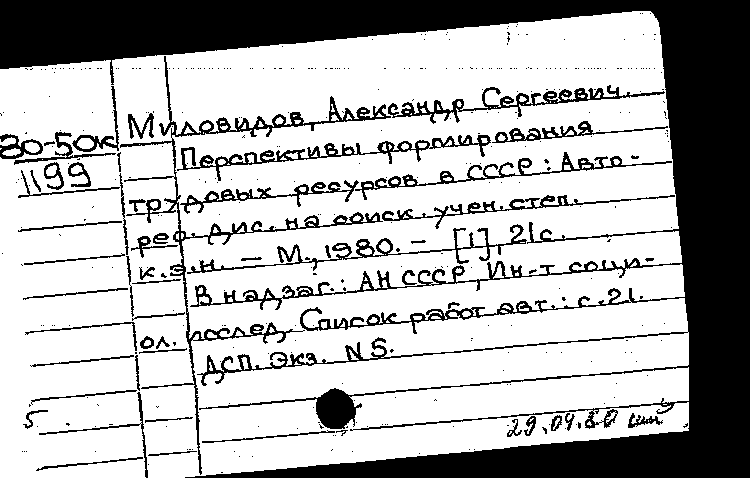 Миловидов, Александр Сергеевич.
80-50к
1199
Перспективы формирования
трудовых ресурсов в СССР : Авто-
реф. дис. на соиск. учен. степ.
к.э.н. — М., 1980. — [1], 21 с.
В надзаг.: АН СССР, Ин-т соци-
ол. исслед. Список работ авт.: с. 21.
ДСП. Экз. N 5.
5
29.09.80